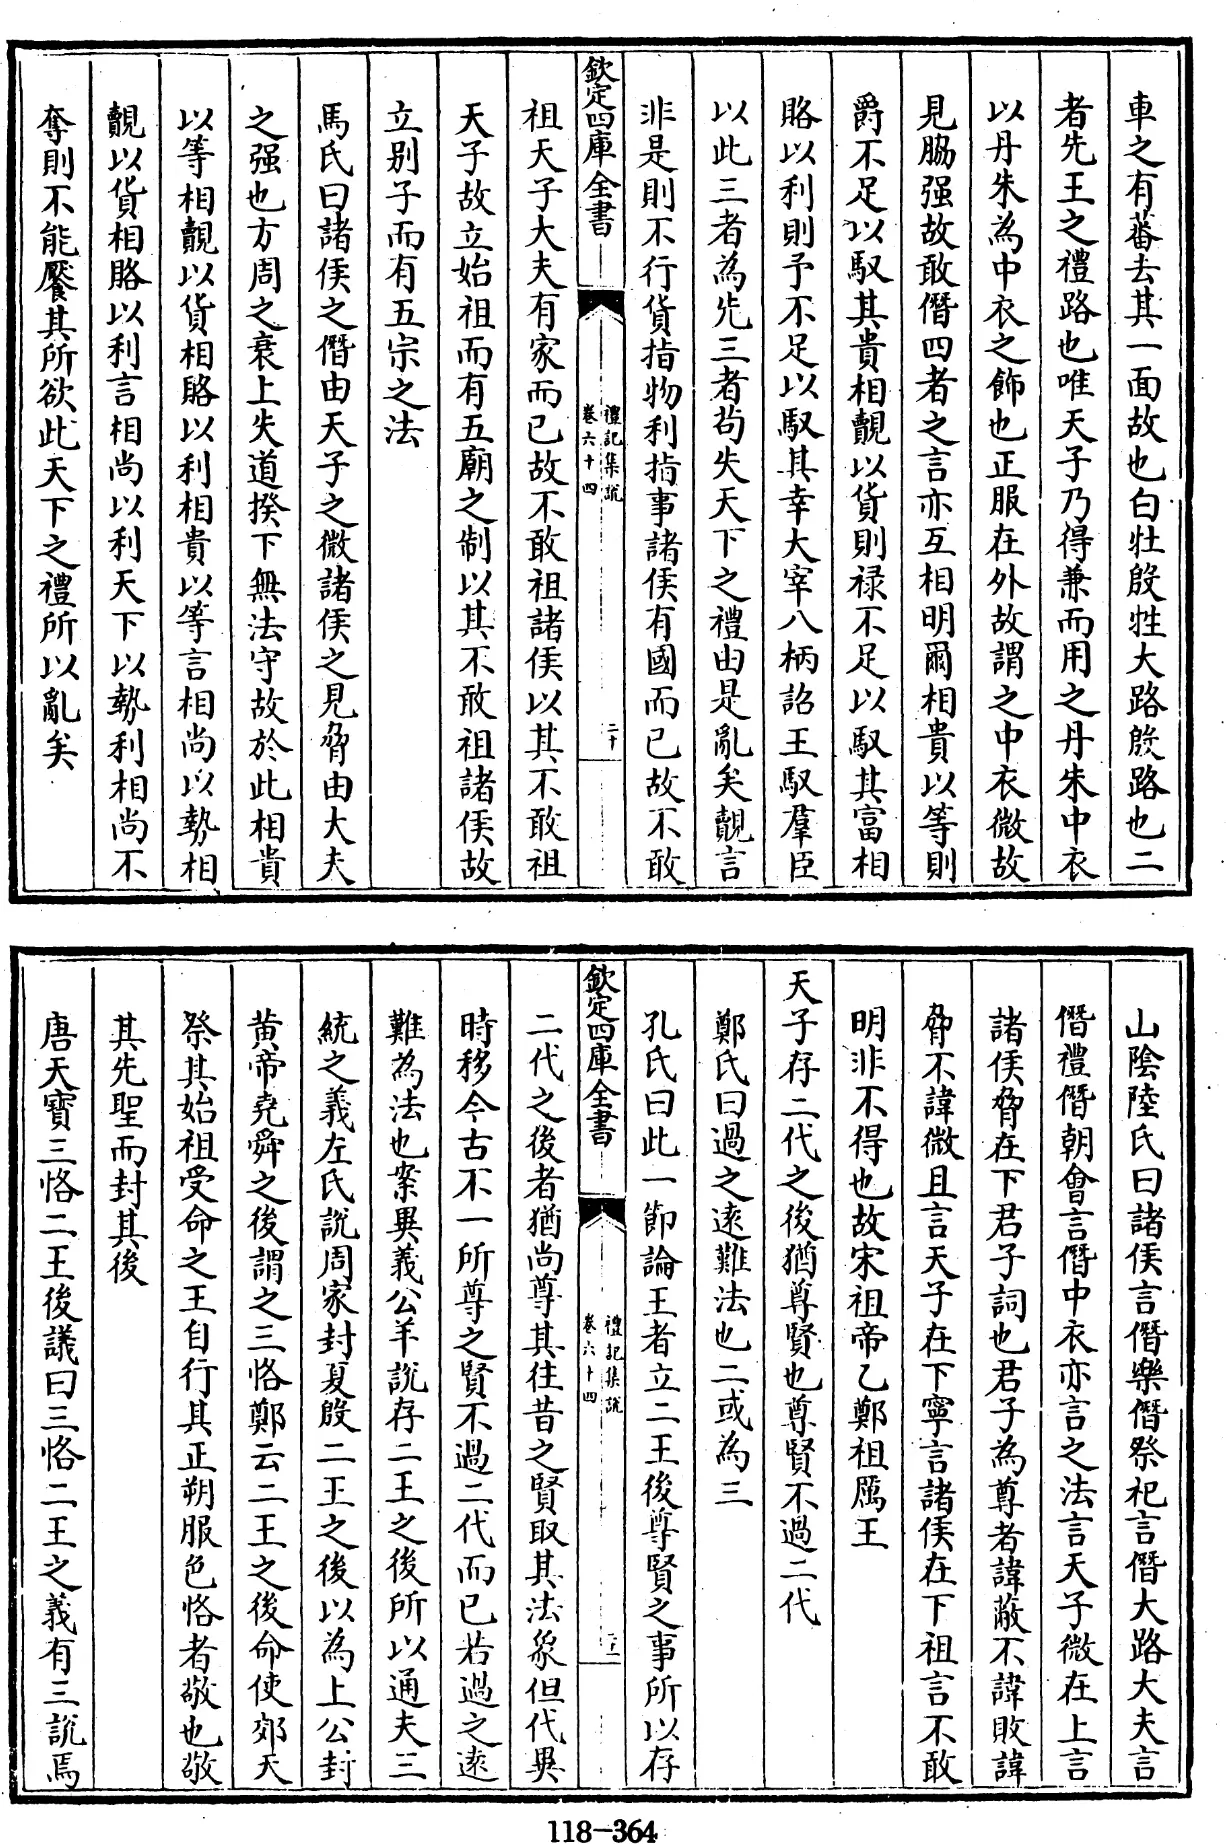 車之有蕃去其一面故也白牡殷牲大路殷路也二
者先王之禮路也唯天子乃得兼而用之丹朱中衣
以丹朱為中衣之飾也正服在外故謂之中衣微故
見脇强故敢僭四者之言亦互相明爾相貴以等則
爵不足以馭其貴相覿以貨則禄不足以馭其富相
賂以利則予不足以馭其幸大宰八柄詔王馭羣臣
以此三者為先三者茍失天下之禮由是亂矣覿言
非是則不行貨指物利指事諸侯有國而已故不敢
欽定四庫全書
禮記集說
卷六十四
二十
祖天子大夫有家而已故不敢祖諸侯以其不敢祖
天子故立始祖而有五廟之制以其不敢祖諸侯故
立别子而有五宗之法
馬氏曰諸侯之僭由天子之微諸侯之見脅由大夫
之强也方周之衰上失道揆下無法守故於此相貴
以等相覿以貨相賂以利相貴以等言相尚以勢相
覿以貨相賂以利言相尚以利天下以勢利相尚不
奪則不能饜其所欲此天下之禮所以亂矣
山陰陸氏曰諸侯言僭樂僭祭祀言僭大路大夫言
僭禮僭朝會言僭中衣亦言之法言天子微在上言
諸侯脅在下君子詞也君子為尊者諱蔽不諱敗諱
脅不諱微且言天子在下寧言諸侯在下祖言不敢
明非不得也故宋祖帝乙鄭祖厲王
天子存二代之後猶尊賢也尊賢不過二代
鄭氏曰過之逺難法也二或為三
孔氏曰此一節論王者立二王後尊賢之事所以存
欽定四庫全書
禮記集說
卷六十四
二十一
二代之後者猶尚尊其往昔之賢取其法象但代異
時移今古不一所尊之賢不過二代而已若過之逺
難為法也案異義公羊說存二王之後所以通夫三
統之義左氏說周家封夏殷二王之後以為上公封
黄帝堯舜之後謂之三恪鄭云二王之後命使郊天
祭其始祖受命之王自行其正朔服色恪者敬也敬
其先聖而封其後
唐天寳三恪二王後議曰三恪二王之義有三說焉
118-364